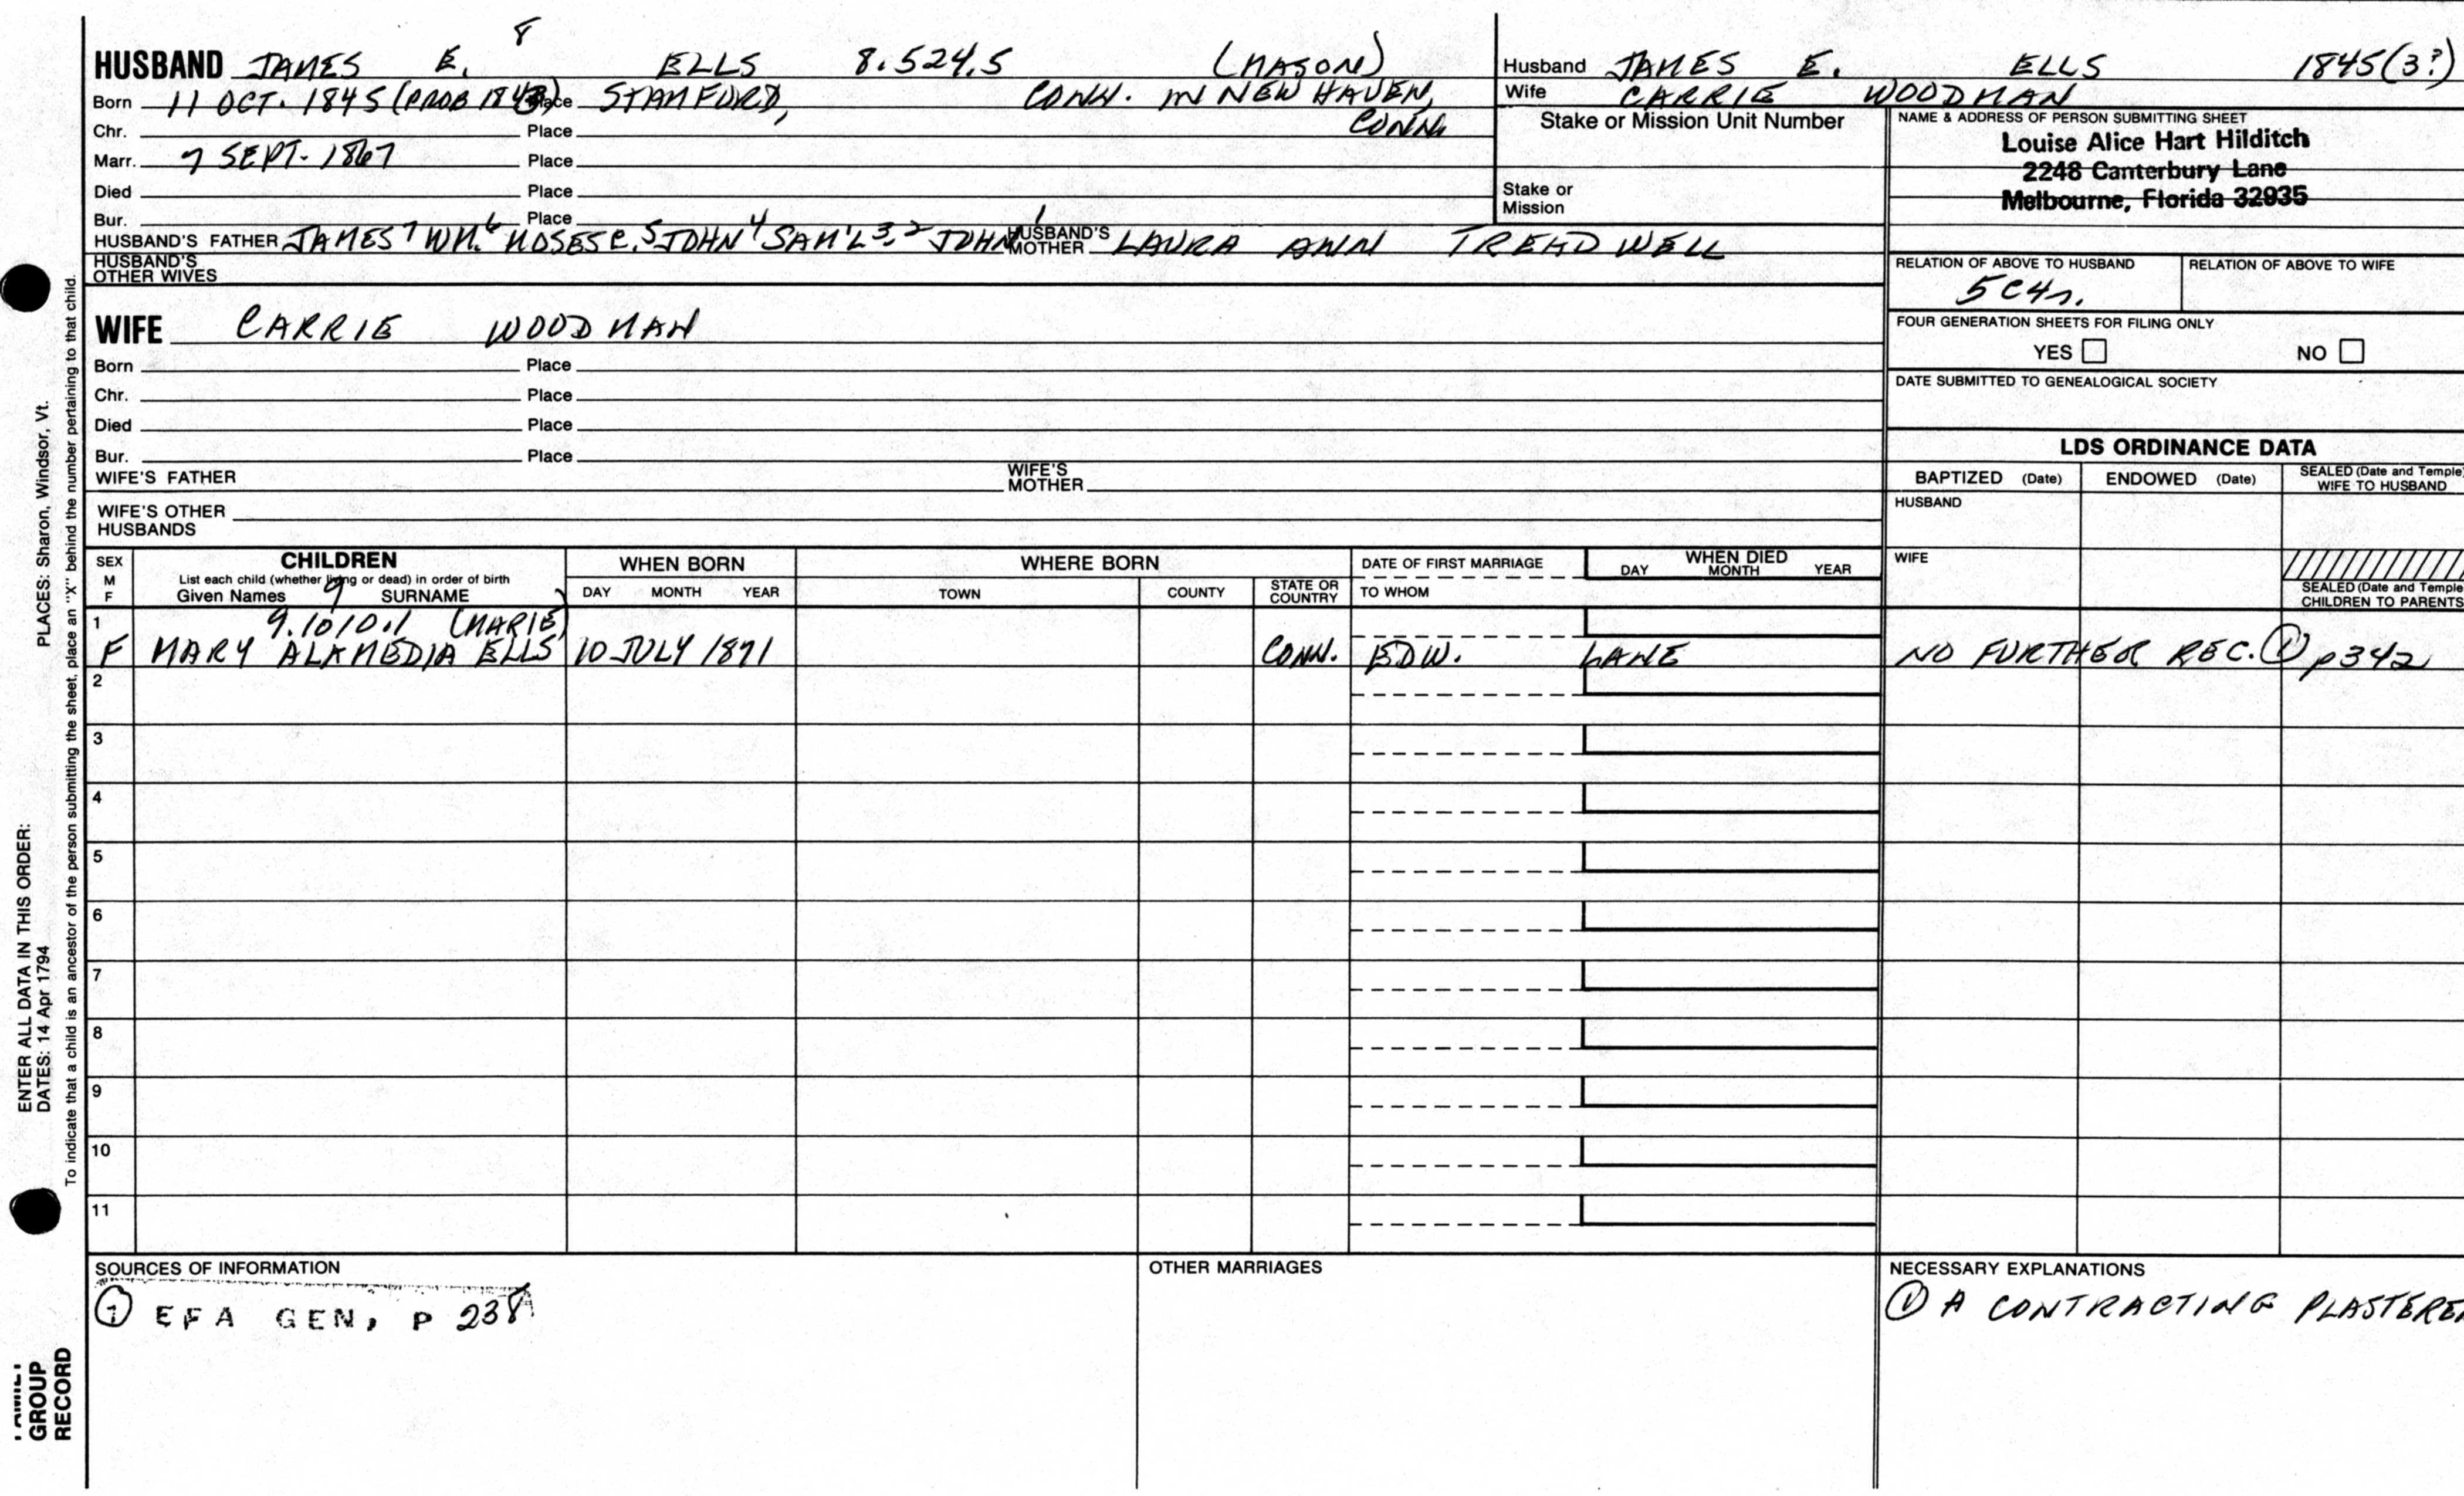 HUSBAND JAMES E. 8 ELLS 8.524.5 (MASON)
Born 11 OCT. 1845 (PROB 1843) Place STAMFORD, CONN. IN NEW HAVEN, CONN.
Chr. Place
Marr. 7 SEPT. 1867 Place
Died Place
Bur. Place
HUSBAND'S FATHER JAMES 7 WM. 6 MOSES C. 5 JOHN 4 SAM'L 3, 2 JOHN 1 HUSBAND'S MOTHER LAURA ANN TREADWELL
HUSBAND'S OTHER WIVES
WIFE CARRIE WOODMAN
Born Place
Chr. Place
Died Place
Bur. Place
WIFE'S FATHER WIFE'S MOTHER
WIFE'S OTHER HUSBANDS
Husband JAMES E. ELLS 1845(3?)
Wife CARRIE WOODMAN
Stake or Mission Unit Number
Stake or Mission
NAME & ADDRESS OF PERSON SUBMITTING SHEET
Louise Alice Hart Hilditch
2248 Canterbury Lane
Melbourne, Florida 32935
RELATION OF ABOVE TO HUSBAND RELATION OF ABOVE TO WIFE
5C4r.
FOUR GENERATION SHEETS FOR FILING ONLY
YES NO
DATE SUBMITTED TO GENEALOGICAL SOCIETY
LDS ORDINANCE DATA
BAPTIZED (Date) ENDOWED (Date) SEALED (Date and Temple) WIFE TO HUSBAND
HUSBAND
WIFE
SEALED (Date and Temple) CHILDREN TO PARENTS
SEX M F CHILDREN List each child (whether living or dead) in order of birth Given Names 9 SURNAME
WHEN BORN DAY MONTH YEAR
WHERE BORN TOWN COUNTY STATE OR COUNTRY
DATE OF FIRST MARRIAGE TO WHOM
WHEN DIED DAY MONTH YEAR
1 9.1010.1 (MARIE)
F MARY ALAMEDIA ELLS 10 JULY 1871 CONN. EDW. LANE NO FURTHER REC. ① p342
2
3
4
5
6
7
8
9
10
11
SOURCES OF INFORMATION
① EFA GEN, P 238
OTHER MARRIAGES
NECESSARY EXPLANATIONS
① A CONTRACTING PLASTERER
ENTER ALL DATA IN THIS ORDER:
DATES: 14 Apr 1794 PLACES: Sharon, Windsor, Vt.
To indicate that a child is an ancestor of the person submitting the sheet, place an "X" behind the number pertaining to that child.
FAMILY
GROUP
RECORD